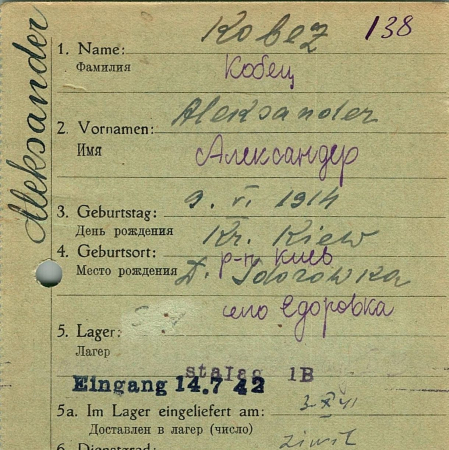 Aleksander
138
1. Name: Kobez
Фамилия Кобец
2. Vornamen: Aleksander
Имя Александер
3. Geburtstag: 9. VI. 1914
День рождения
4. Geburtsort: Kr. Kiew
р-н Киев
Место рождения D. Jdorowka
село Едоровка
5. Lager:
Лагер
stalag 1B
Eingang 14.7 42
5a. Im Lager eingeliefert am: 3.XI 41
Доставлен в лагер (число)
6. Dienstgrad: ziwil